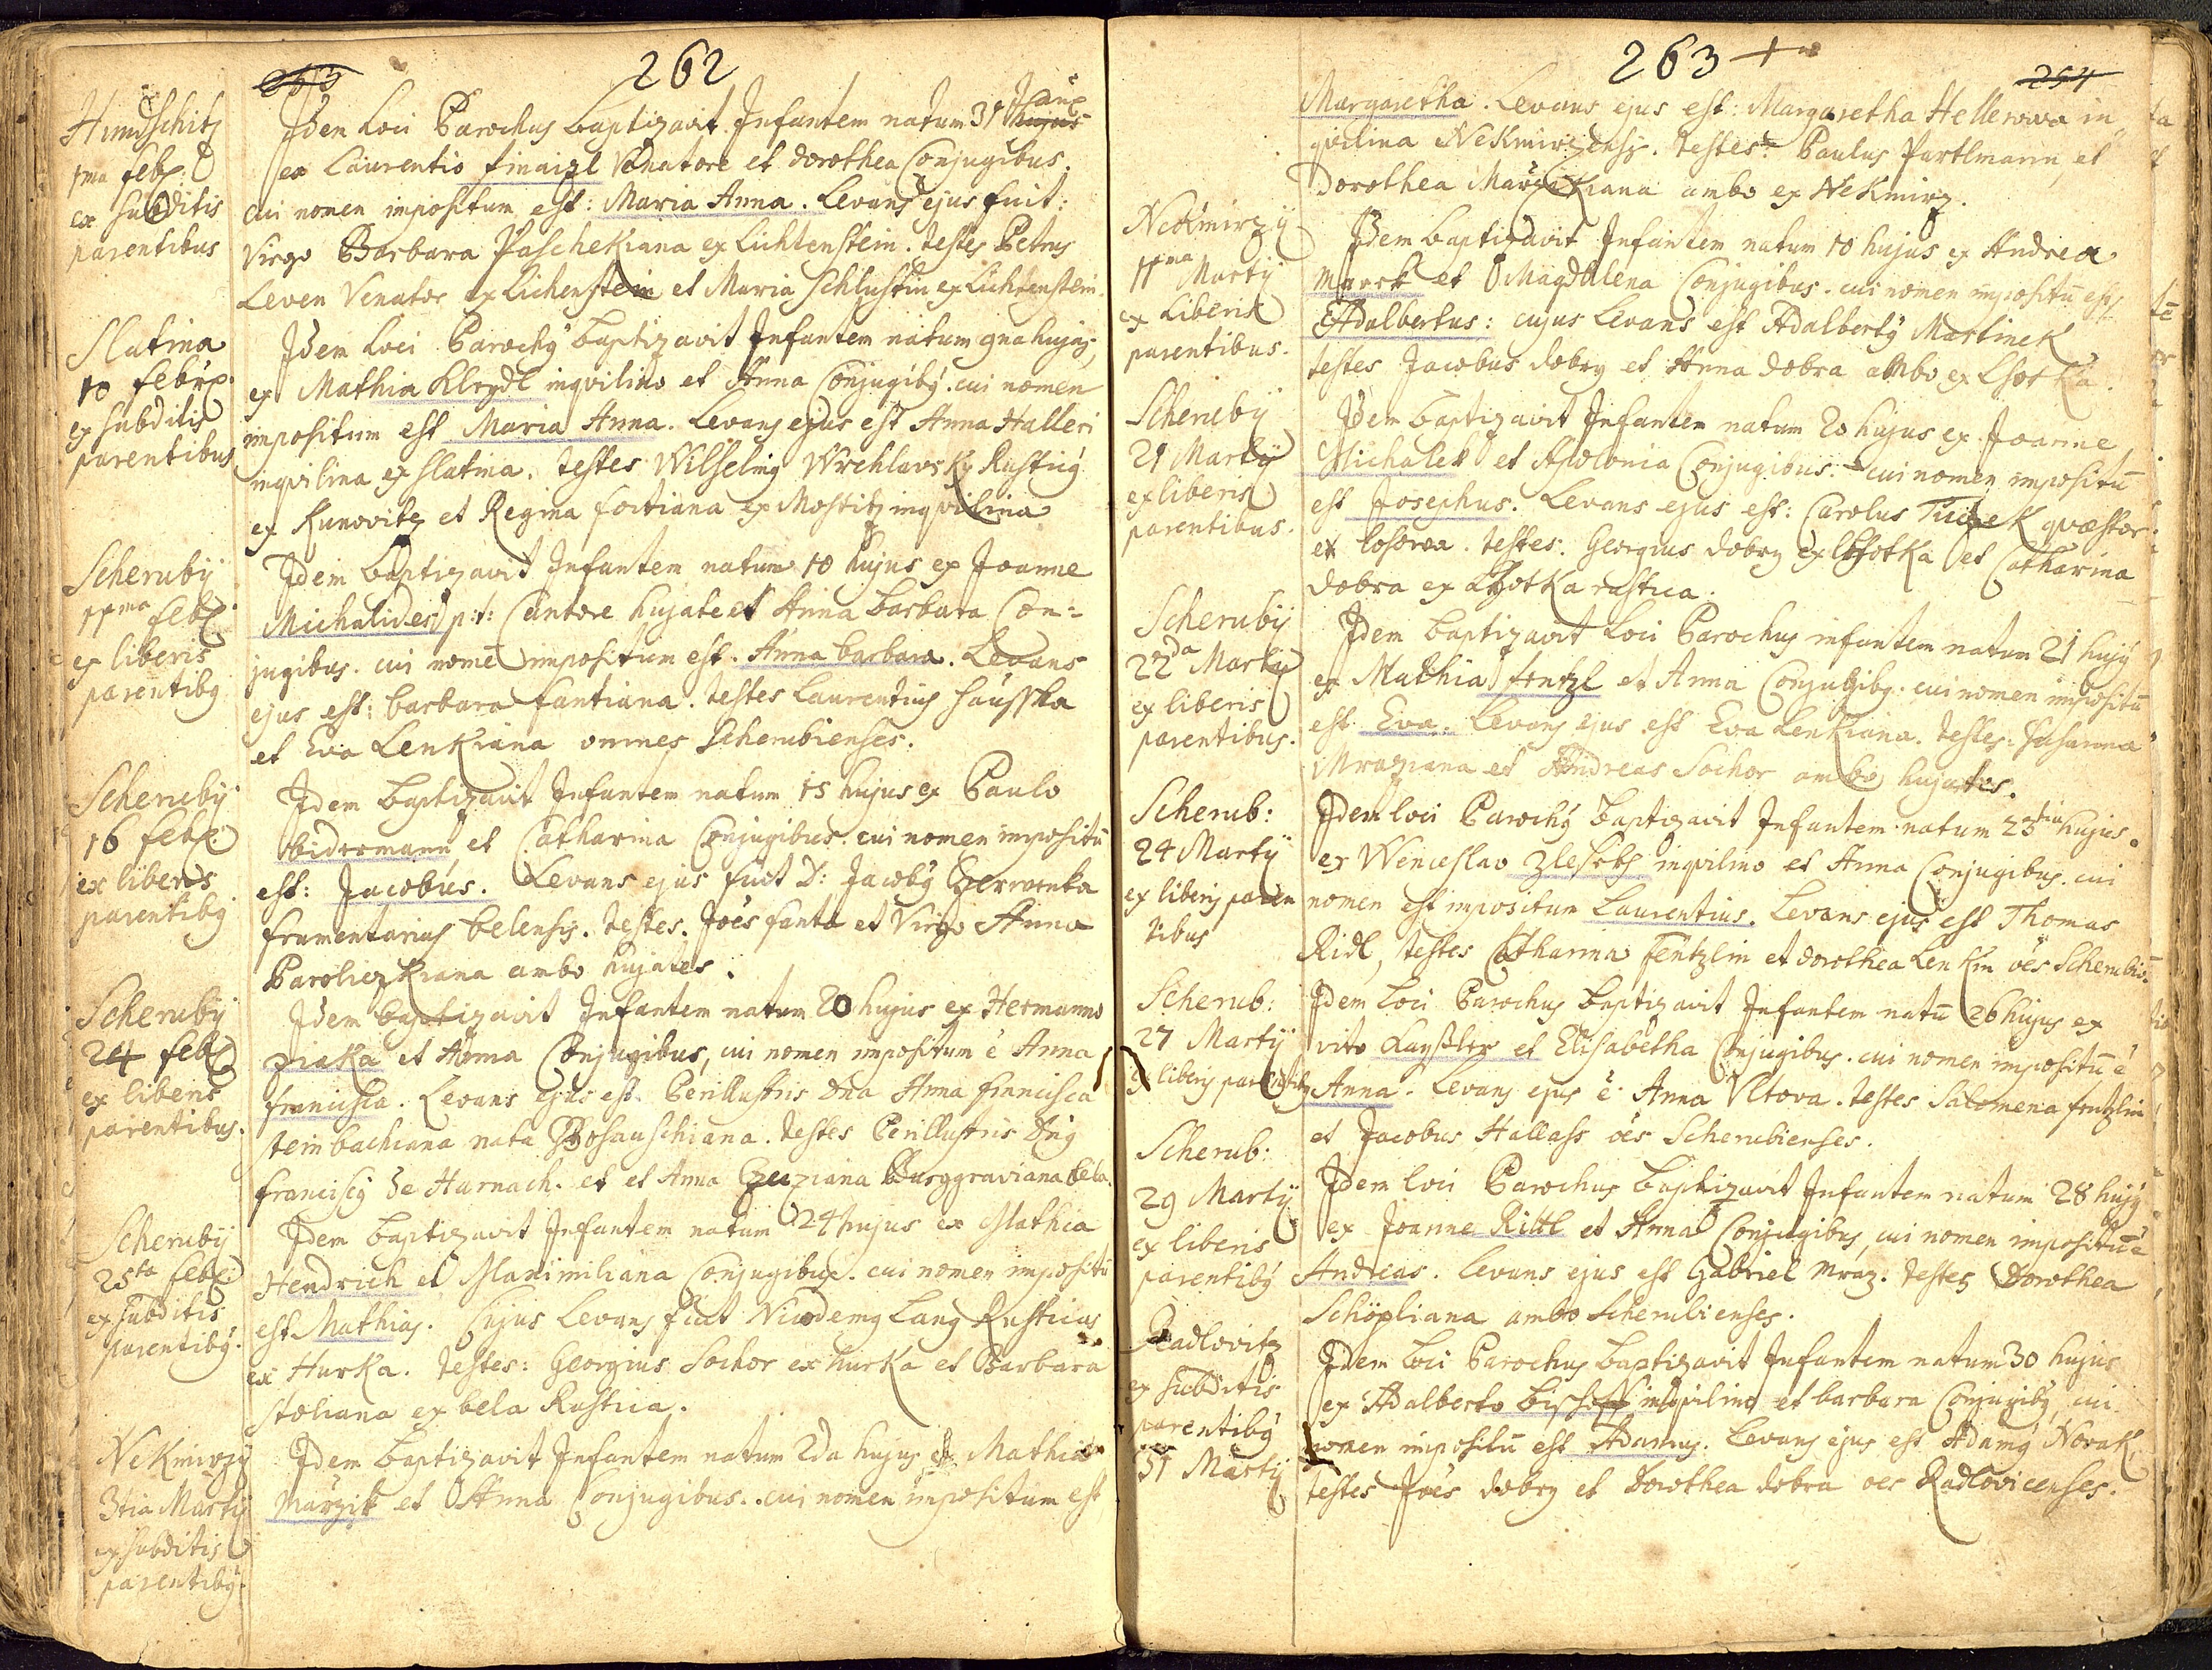 262
Hundschitz
1ma febr.
ex subditis
parentibus
Idem loci Parochus baptizavit Infantem natum 31 Janr
ex Laurentio finaizl Venatore et dorothea Conjugibus.
cui nomen impositum est: Maria Anna. Levans ejus fuit:
Virgo Barbara Paschekiana ex Lichtenstein. testes Petrus
Leven Venator ex Lichenstein et Maria Schlustin ex Lichtenstein.
Slatina
10 febru.
ex subditis
parentibus
Idem loci Parochy baptizavit Infantem natum 9na hujus,
ex Mathia Klezdl inqvilino et Anna Conjugiby. cui nomen
impositum est Maria Anna. Levans ejus est Anna Halleri
inqvilina ex slatina. testes Wilhelmg Wrchlavsky Rusticg
ex Kunovitz et Regina fortiana ex Mostitz inqvilina
Scheruby
11ma febr.
ex liberis
parentibg
Idem baptizavit Infantem natum 10 hujus ex Joanne
Michalides p:t: Cantore hujate et Anna barbara Con=
jugibus. cui nomē impositum est. Anna barbara. Levans
ejus est: barbara fantiana. testes Laurentius Hausska
et Eva Lenkiana omnes Scherubienses.
Scheruby
16 febr.
ex liberis
parentibg
Idem baptizavit Infantem natum 15 hujus ex Paulo
bidermann et Catharina Conjugibus. cui nomen impositū
est: Jacobus. Levans ejus fuit D: Jacoby Czerwenka
frumentarius belensis. testes. Joēs fanta et Virgo Anna
Paroliczkiana ambo hujates.
Scheruby
24 febr
ex liberis
parentibus.
Idem baptizavit Infantem natum 20 hujus ex Hermanno
ziaka et Anna Conjugibus, cui nomen impositum ē Anna
francisca. Levans ejus est. Perillustris Dna Anna francisca
steinbachiana nata Bosauschiana. testes Perillustris Dng
franciscg de Harnach. et et Anna Czecziana Burggraviana bela.
Scheruby
25ta febr.
ex subditis
parentiby.
Idem baptizavit Infantem natum 24 hujus ex Mathia
Hendrich et Maximiliana Conjugibus. cui nomen impositū
est Mathias. Cujus Levans fuit Nicodemg Lang Rusticus
ex Hurka. testes: Georgius Sochor ex hurka et Barbara
stoliana ex bela Rustica.
Nekmirzy
3tia Marty
ex subditis
parentiby.
Idem baptizavit Infantem natum 2da hujus ex Mathia
Marzik et Anna Conjugibus. cui nomen impositum est
263 +
254
Margaretha. Levans ejus est: Margaretha Hellerova in
qvilina Nekmirzensis. testes: Paulus Partlmann, et
Dorothea Marzikiana ambo ex Nekmirz.
Nekmirzy
11ma Marty
ex Liberis
parentibus.
Idem baptizavit Infantem natum 10 hujus ex Andrea
Marek et Magdalena Conjugibus. cui nomen impositū est
Adalbertus: cujus Levans est Adalberty Martinek
testes Jacobus dobry et Anna dobra ambo ex Lhotka.
Scheruby
21 Marty
ex liberis
parentibus.
Idem baptizavit Infantem natum 20 hujus ex Joanne
Michalek et Apolonia Conjugibus. cui nomen impositū
est Josephus. Levans ejus est: Carolus Tuczek qvæstor
ex losowa. testes: Georgius dobry ex Lhotka et Catharina
dobra ex Lhotka rustica.
Scheruby
22da Marty
ex liberis
parentibus.
Idem baptizavit Loci Parochus infantem natum 21 hujy
ex Mathia fentzl et Anna Conjugibg. cui nomen impositū
est Eva. Levans ejus est Eva Lenkiana. testes: Susanna
Mraziana et Andreas Sochor ambo hujates.
Scherub:
24 Marty
ex liberis paren
tibus
Idem loci Parochy baptizavit Infantem natum 23tia hujus
ex Wenceslao zlesebs inqvilino et Anna Conjugibus. cui
nomen est impositum Laurentius. Levans ejus est Thomas
Ridl, testes Catharina fentzlin et dorothea Lenkin oēs Scherubis.
Scherub:
27 Marty
ex liberis parentibg
Idem loci Parochus baptizavit Infantem natū 26 hujus ex
vito Kaysler et Elisabetha Conjugibus. cui nomen impositū ē
Anna. Levans ejus ē Anna Vltova. testes Salomena fentzlin
et Jacobus Hallass oēs Scherubienses.
Scherub:
29 Marty
ex liberis
parentiby
Idem loci Parochus baptizavit Infantem natum 28 hujy
ex Joanne Rittl et Anna Conjugibus, cui nomen impositū ē
Andreas. Levans ejus est Gabriel Mraz. testes Dorothea
Schöpliana ambo Scherubienses.
Radlovitz
ex subditis
parentiby
31 Marty
Idem loci Parochus baptizavit Infantem natum 30 hujus
ex Adalberto bischoff inqvilino et barbara Conjugiby, cui
nomen impositū est Adamus. Levans ejus est Adamy Novak,
testes Joēs dobry et Dorothea dobra oēs Radlovicenses.